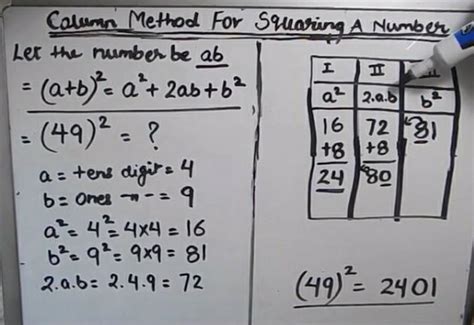 Column Method For Squaring A Number
Let the number be ab
= (a+b)² = a² + 2ab + b²
= (49)² = ?
a = tens digit = 4
b = ones -〃- = 9
a² = 4² = 4×4 = 16
b² = 9² = 9×9 = 81
2.a.b = 2.4.9 = 72
I II
a² 2.a.b b²
16 72 81
+8 +8
24 80
(49)² = 2401